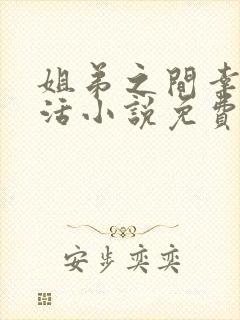 姐弟之間幸
活小說免費
安步奕奕